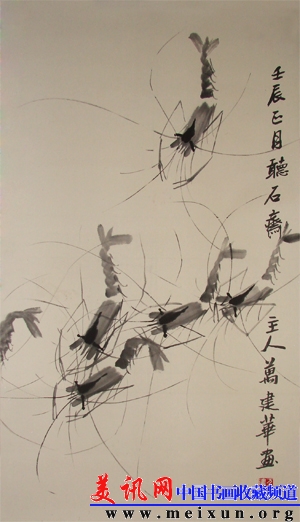 壬辰正月聽石齋
主人萬建華画
美讯网
中国书画收藏频道
www.meixun.org